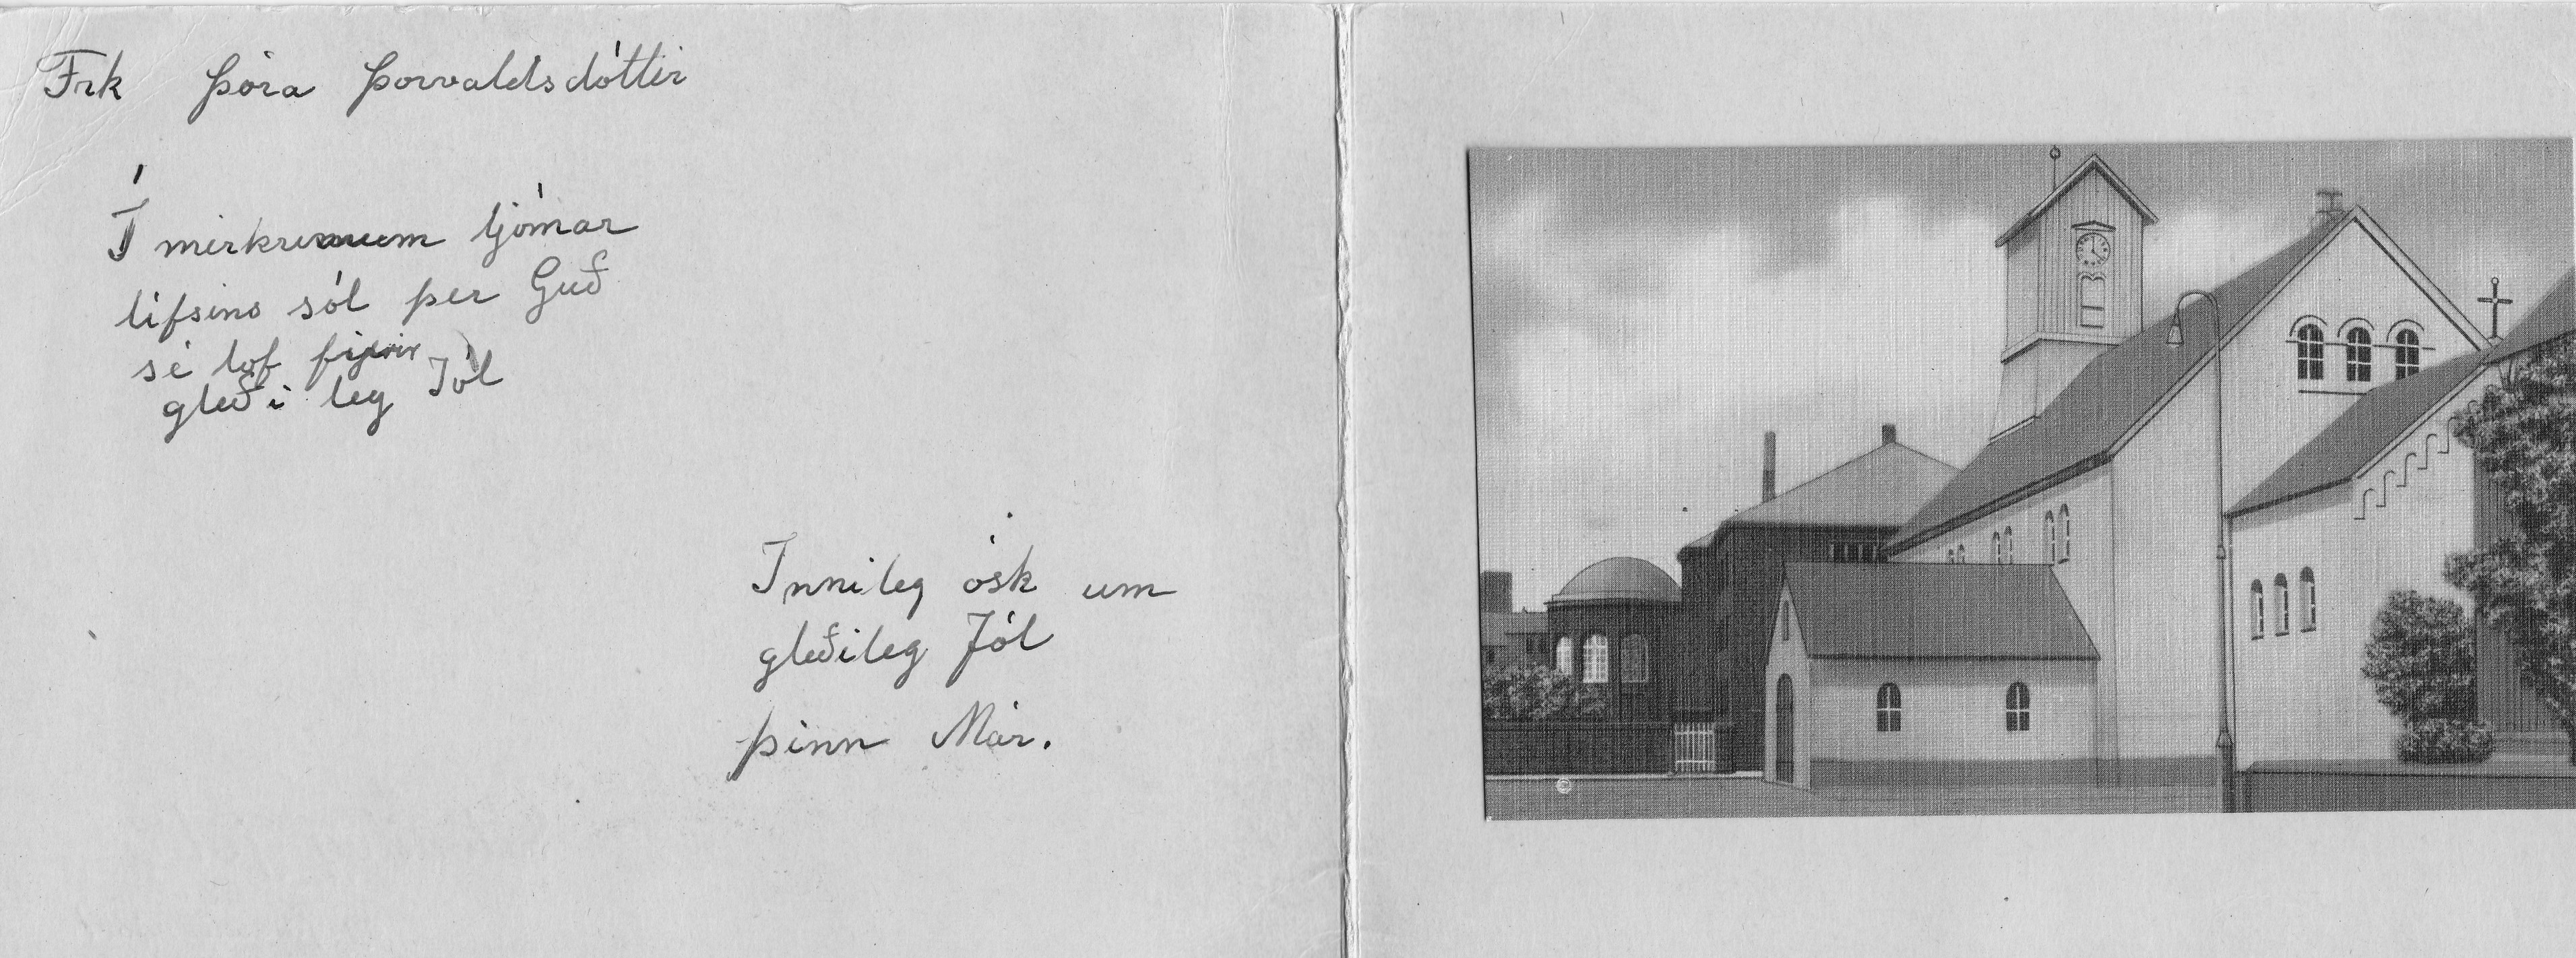 Frk Þóra Þorvaldsdóttir
Í mirkrunum ljómar
lífsins sól þer Guð
sé lof firir
gleði leg Jól
Innileg ósk um
gleðileg Jól
þinn Már.